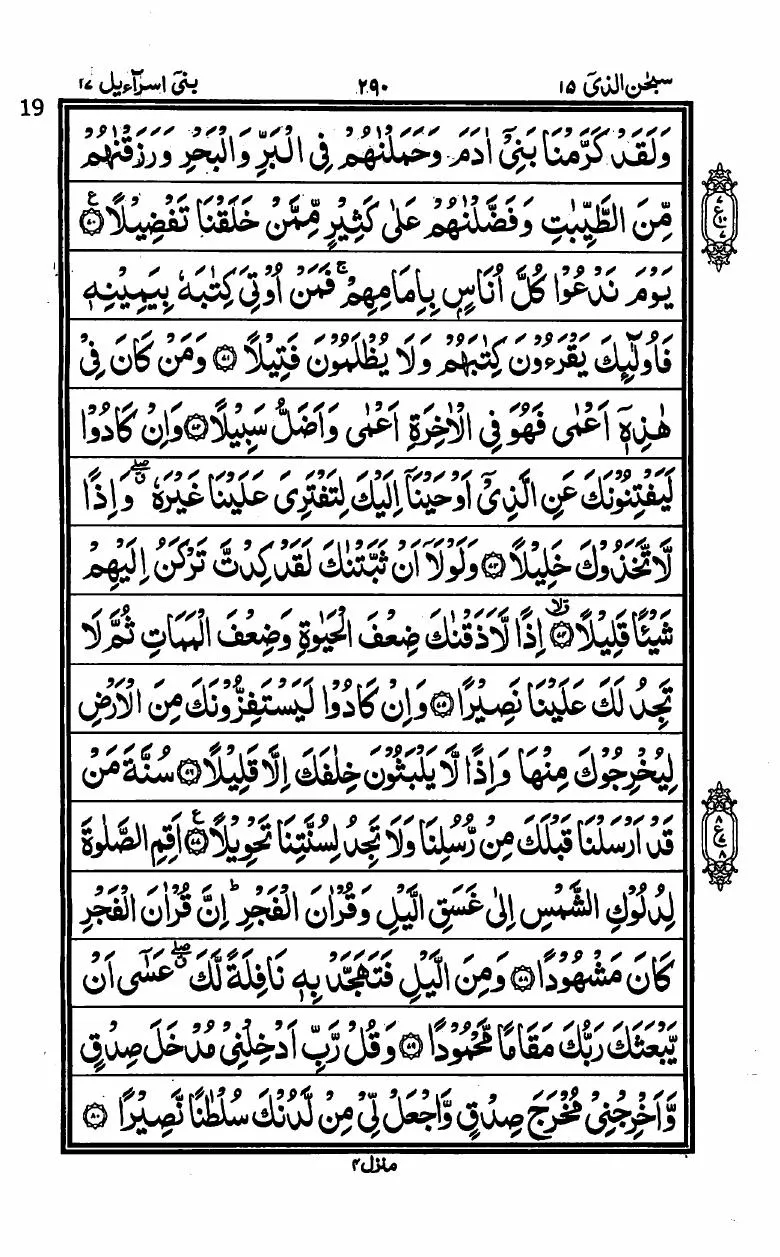 سبحٰن الذیٓ ١٥
٢٩٠
بنیٓ اسرآءیل ١٧
19
وَلَقَدْ كَرَّمْنَا بَنِیْۤ اٰدَمَ وَحَمَلْنٰهُمْ فِی الْبَرِّ وَالْبَحْرِ وَرَزَقْنٰهُمْ
مِّنَ الطَّیِّبٰتِ وَفَضَّلْنٰهُمْ عَلٰی كَثِیْرٍ مِّمَّنْ خَلَقْنَا تَفْضِیْلًا ۧ﴿٧٠﴾
یَوْمَ نَدْعُوْا كُلَّ اُنَاسٍۭ بِاِمَامِهِمْ ۚ فَمَنْ اُوْتِیَ كِتٰبَهٗ بِیَمِیْنِهٖ
فَاُولٰٓئِكَ یَقْرَءُوْنَ كِتٰبَهُمْ وَلَا یُظْلَمُوْنَ فَتِیْلًا ﴿٧١﴾ وَمَنْ كَانَ فِیْ
هٰذِهٖۤ اَعْمٰی فَهُوَ فِی الْاٰخِرَةِ اَعْمٰی وَاَضَلُّ سَبِیْلًا ﴿٧٢﴾ وَاِنْ كَادُوْا
لَیَفْتِنُوْنَكَ عَنِ الَّذِیْۤ اَوْحَیْنَاۤ اِلَیْكَ لِتَفْتَرِیَ عَلَیْنَا غَیْرَهٗ ۖۗ وَاِذًا
لَّاتَّخَذُوْكَ خَلِیْلًا ﴿٧٣﴾ وَلَوْلَاۤ اَنْ ثَبَّتْنٰكَ لَقَدْ كِدْتَّ تَرْكَنُ اِلَیْهِمْ
شَیْئًا قَلِیْلًا ۗۙ﴿٧٤﴾ اِذًا لَّاَذَقْنٰكَ ضِعْفَ الْحَیٰوةِ وَضِعْفَ الْمَمَاتِ ثُمَّ لَا
تَجِدُ لَكَ عَلَیْنَا نَصِیْرًا ﴿٧٥﴾ وَاِنْ كَادُوْا لَیَسْتَفِزُّوْنَكَ مِنَ الْاَرْضِ
لِیُخْرِجُوْكَ مِنْهَا وَاِذًا لَّا یَلْبَثُوْنَ خِلٰفَكَ اِلَّا قَلِیْلًا ﴿٧٦﴾ سُنَّةَ مَنْ
قَدْ اَرْسَلْنَا قَبْلَكَ مِنْ رُّسُلِنَا وَلَا تَجِدُ لِسُنَّتِنَا تَحْوِیْلًا ۧ﴿٧٧﴾ اَقِمِ الصَّلٰوةَ
لِدُلُوْكِ الشَّمْسِ اِلٰی غَسَقِ الَّیْلِ وَقُرْاٰنَ الْفَجْرِ ؕ اِنَّ قُرْاٰنَ الْفَجْرِ
كَانَ مَشْهُوْدًا ﴿٧٨﴾ وَمِنَ الَّیْلِ فَتَهَجَّدْ بِهٖ نَافِلَةً لَّكَ ۖۗ عَسٰۤی اَنْ
یَّبْعَثَكَ رَبُّكَ مَقَامًا مَّحْمُوْدًا ﴿٧٩﴾ وَقُلْ رَّبِّ اَدْخِلْنِیْ مُدْخَلَ صِدْقٍ
وَّاَخْرِجْنِیْ مُخْرَجَ صِدْقٍ وَّاجْعَلْ لِّیْ مِنْ لَّدُنْكَ سُلْطٰنًا نَّصِیْرًا ﴿٨٠﴾
منزل ٤
٧
ع١٠
٧
٨
ع٧
٨